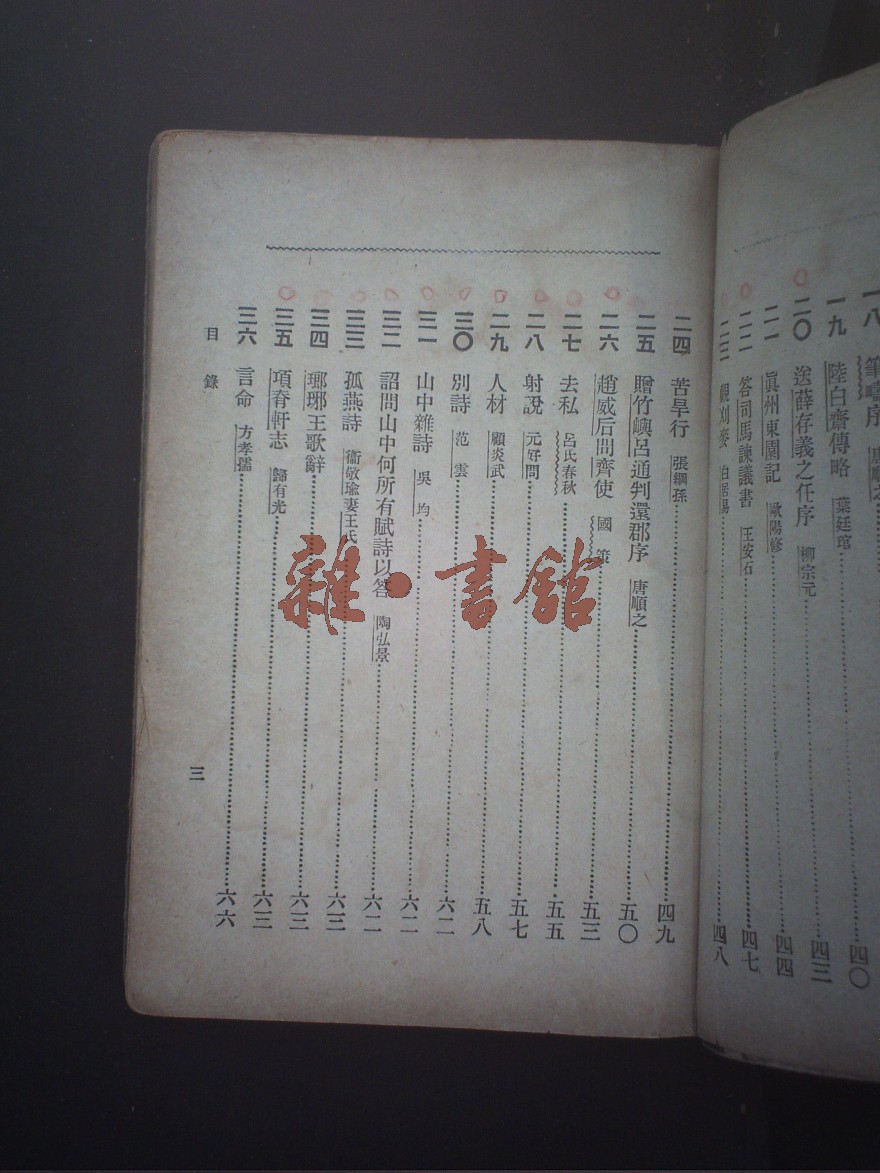 一八 筆疇序 唐順之 四〇
一九 陸白齋傳略 葉廷琯 四三
二〇 送薛存義之任序 柳宗元 四三
二一 眞州東園記 歐陽修 四四
二二 答司馬諫議書 王安石 四七
二三 觀刈麥 白居易 四八
二四 苦旱行 張綱孫 四九
二五 贈竹嶼呂通判還郡序 唐順之 五〇
二六 趙威后問齊使 國策 五三
二七 去私 呂氏春秋 五五
二八 射說 元好問 五七
二九 人材 顧炎武 五八
三〇 別詩 范雲 六二
三一 山中雜詩 吳均 六二
三二 詔問山中何所有賦詩以答 陶弘景 六二
三三 孤燕詩 衞敬瑜妻王氏 六三
三四 瑯琊王歌辭 六三
三五 項脊軒志 歸有光 六三
三六 言命 方孝孺 六六
目錄
三
雜·書館